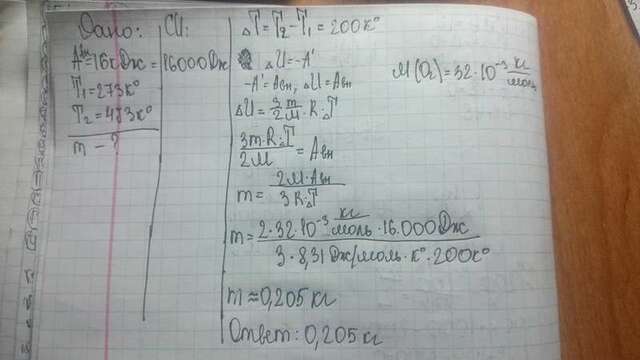 Дано:
Aвн=16кДж=
T₁=273к°
T₂=473к°
m - ?
СИ:
16000Дж
ΔT=T₂-T₁=200к°
ΔU=-A'
-A'=Aвн, ΔU=Aвн
ΔU=3/2 m/M·R·ΔT
3m·R·ΔT/2M = Aвн
m= 2M·Aвн/3R·ΔT
m= 2·32·10⁻³ кг/моль·16.000Дж/3·8,31Дж/моль·к°·200к°
m≈0,205кг
Ответ: 0,205кг
M(O₂)=32·10⁻³ кг/моль